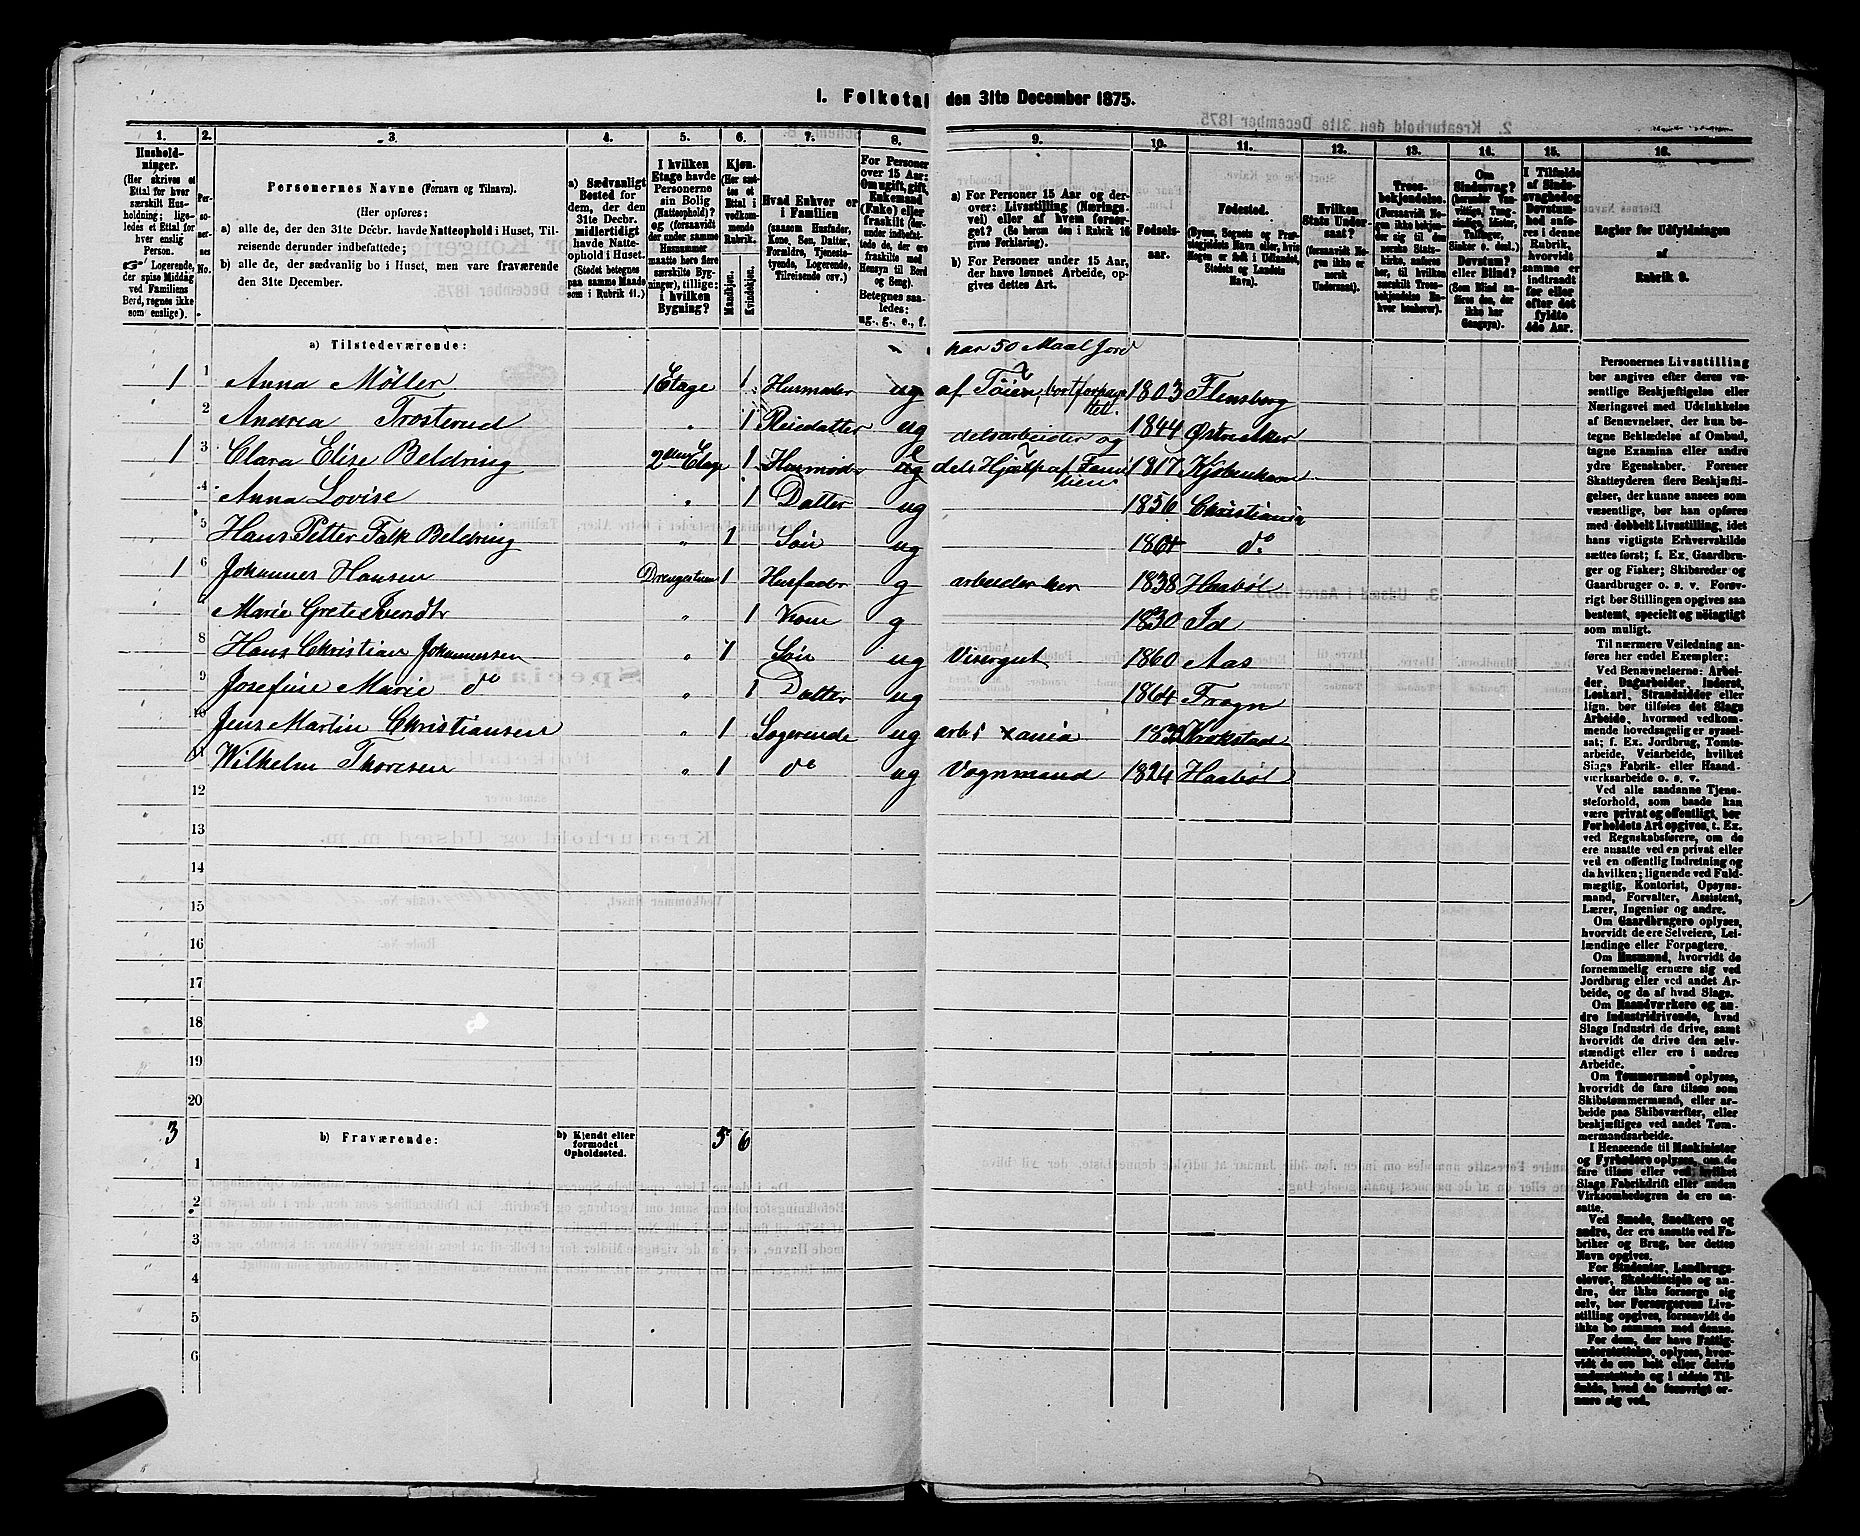 1. Folketal den 31te December 1875.
1. 2. 3. 4. 5. 6. 7. 8. 9. 10. 11. 12. 13. 14. 15. 16.
Husholdninger.
(Her skrives et
Ettal for hver
særskilt Husholdning;
ligeledes et Ettal for
hver enslig
Person.
Logerende,
der spise Middag
ved Familiens
Bord, regnes ikke
som enslige).
Personernes No.
Personernes Navne (Fornavn og Tilnavn).
(Her opføres:
a) alle de, der den 31te Decbr. havde Natteophold i Huset, Tilreisende derunder indbefattede;
b) alle de, der sædvanlig bo i Huset, men vare fraværende
den 31te December.
a) Sædvanligt
Bosted for
dem, der den
31te Decbr.
midlertidigt
havde Natteophold i Huset.
(Stedet betegnes
paa samme Maade
som i Rubrik 11.)
I hvilken
Etage havde
Personerne
sin Bolig
(Natteophold)?
og (forsaavidt
der under samme
Husnummer
maatte høre flere
særskilte Bygninger), tillige:
i hvilken
Bygning?
Kjøn.
(Her sættes et
Ettal i
vedkommende
Rubrik.
Mandkjøn.
Kvindekjøn.
Hvad Enhver er
i Familien
(saasom Husfader,
Kone, Søn, Datter,
Forældre, Tjenestetyende, Logerende,
Tilreisende osv.)
For Personer
over 15 Aar:
Om ugift, gift,
Enkemand
(Enke) eller
fraskilt
Betegnes saaledes:
ug., g., e., f.
a) For Personer 15 Aar og derover: Livsstilling (Næringsvei) eller af hvem forsørget? (Se herom den i Rubrik 16
givne Forklaring).
b) For Personer under 15 Aar,
der have lønnet Arbeide, opgives dettes Art.
Fødselsaar.
Fødested.
(Byens, Sognets og Præstegjeldets Navn eller, hvis
Nogen er født i Udlandet,
Stedets og Landets
Navn).
Hvilken
Stats Undersaat?
(forsaavidt Nogen ikke er
norsk
Undersaat).
Troesbekjendelse.
(Forsaavidt Nogen ikke bekjender sig til
den norske Statskirke, anføres
her, til hvilken
særskilt Troesbekjendelse Enhver henhører).
Om
Sindssvag?
Døvstum?
eller Blind?
I Tilfælde
af Sindssvaghed og
Døvstumhed anføres i denne
Rubrik,
hvorvidt
samme er
indtraadt
før eller
efter det
fyldte
4de Aar.
Regler for Udfyldningen
af
Rubrik 9.
a) Tilstedeværende: har 50 Maal Jord
1 1 Anna Möller 1 Etage 1 Husmoder ug af Töien, bortforpag 1803 Flensborg
2 Andrea Trosterud " 1 Pleiedatter ug tet. 1844 Østre Aker
delsarbeider og
1 3 Clara Elise Beldring 2den Etage 1 Husmoder e dels Hjælp af Fami 1817 Kjøbenhavn
lien
4 Anna Lovise " 1 Datter ug 1856 Christiania
5 Hans Petter Falk Beldring " 1 Søn ug 1861 do
1 6 Johannes Hansen Drengestuen 1 Husfader g arbeider her 1838 Haabøl
Marie Grete " 1 Kone g 1830 Id
8 Hans Christian Johannessen " 1 Søn ug Visergut 1860 Aas
9 Josefine Marie do " 1 Datter ug 1864 Frogn
10 Jens Martin Christiansen " 1 Logerende ug arb i Xania Krokstad
11 Wilhelm Thoresen " 1 do ug Vognmand 1824 Haabøl
12
13
14
15
16
17
18
19
20
3 b) Fraværende: b) Kjendt eller
formodet
Opholdssted. 5 6
1
2
3
4
5
6
Personernes Livsstilling
bør angives efter deres væsentlige Beskjæftigelse eller
Næringsvei med Udelukkelse
af Benævnelser, der kun betegne Beklædelse af Ombud,
tagne Examina eller andre
ydre Egenskaber. Forener
Skatteyderen flere Beskjæftigelser, der kunne ansees som
væsentlige, bør han opføres
med dobbelt Livsstilling, idet
hans vigtigste Erhvervskilde
sættes først; f. Ex. Gaardbruger og Fisker; Skibsreder og
Gaardbruger o. s. v. Forøvrigt bør Stillingen opgives saa
bestemt, specielt og nöiagtigt
som muligt.
Til nærmere Veiledning anføres her endel Exempler:
Ved Benævnelserne: Arbeider, Dagarbeider, Inderst,
Løskarl, Strandsidder eller
lign. bør tilføies det Slags
Arbeide, hvormed vedkommende hovedsagelig er sysselsat; f. Ex. Jordbrug, Tomtearbeide, Veiarbeide, hvilket
Slags Fabrik- eller Haandværksarbeide o. s. v.
Ved alle saadanne Tjenesteforhold, som baade kan
være privat og offentligt, bør
Forholdets Art opgives, t. Ex.
ved Regnskabsførere, om de
ere ansatte ved en privat eller
ved en offentlig Indretning og
da hvilken; lignende ved Fuldmægtig, Kontorist, Opsynsmand, Forvalter, Assistent,
Lærer, Ingeniør og andre.
Om Gaardbrugere oplyses,
hvorvidt de ere Selveiere, Leilændinge eller Forpagtere.
Om Husmænd, hvorvidt de
fornemmelig ernære sig ved
Jordbrug eller ved andet Arbeide, og da af hvad Slags.
Om Haandværkere og andre Industridrivende, hvad
Slags Industri de drive, samt
hvorvidt de drive den selvstændigt eller ere i andres
Arbeide.
Om Tømmermænd oplyses,
hvorvidt de fare tilsøs som
Skibstømmermænd, eller arbeide paa Skibsværfter, eller
beskjæftiges ved andet Tømmermandsarbeide.
I Henseende til Maskinister
og Fyrbødere oplyses, om de
fare tilsøs eller ved hvilket
Slags Fabrikdrift eller anden
Virksomhedsgren de ere ansatte.
Ved Smede, Snedkere og
andre, der ere ansatte ved Fabriker og Brug, bør dettes
Navn opgives.
For Studenter, Landbrugselever, Skoledisciple og andre, der ikke forsørge sig
selv, bør Forsørgerens Livsstilling opgives, forsaavidt de
ikke bo sammen med denne.
For dem, der have Fattigunderstøttelse, oplyses, hvorvidt de ere helt eller delvis
understøttede og i sidste Tilfælde, hvad de forøvrigt ernære sig ved.